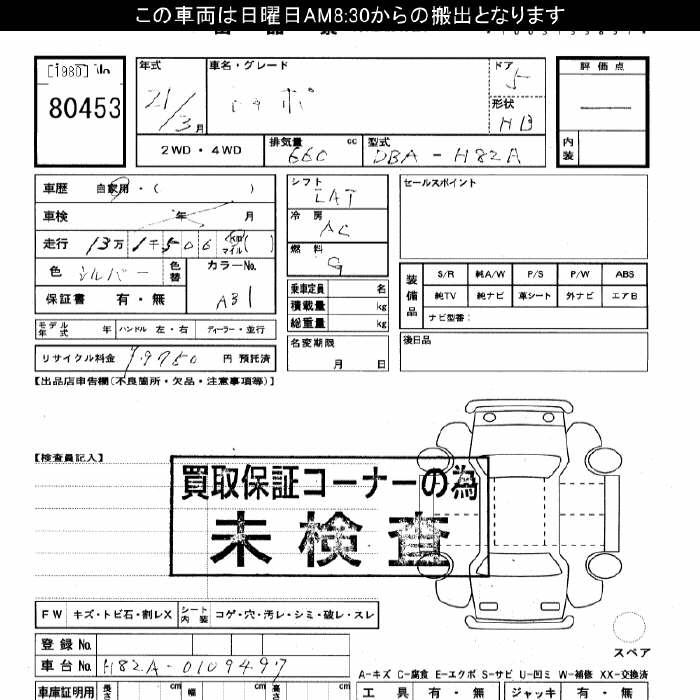 この車両は日曜日AM8:30からの搬出となります
80453
年式
21/3月
車名・グレード
トッポ
ドア
5
形状
HB
評価点
内装
2WD・4WD
排気量
660 cc
型式
DBA-H82A
車歴 自家用・( )
車検 年 月
走行 13万 1千506 km マイル( )
色 シルバー 色替
カラーNo.
A31
保証書 有・無
モデル年式 年 ハンドル 左・右 ディーラー・並行
リサイクル料金 円 預託済
シフト
冷房
AC
燃料
G
乗車定員 名
積載量 kg
総重量 kg
名変期限
月 日
セールスポイント
装備品
S/R 純A/W P/S P/W ABS
純TV 純ナビ 革シート 外ナビ エアB
ナビ型番:
後日品
【出品店申告欄(不良箇所・欠品・注意事項等)】
【検査員記入】
買取保証コーナーの為
未検査
FW キズ・トビ石・割レX シート内装 コゲ・穴・汚レ・シミ・破レ・スレ
登録No.
車台No. H82A-0109497
スペア
A-キズ C-腐食 E-エクボ S-サビ U-凹ミ W-補修 XX-交換済
車庫証明用 長さ cm 幅 cm 高さ cm
工具 有・無 ジャッキ 有・無